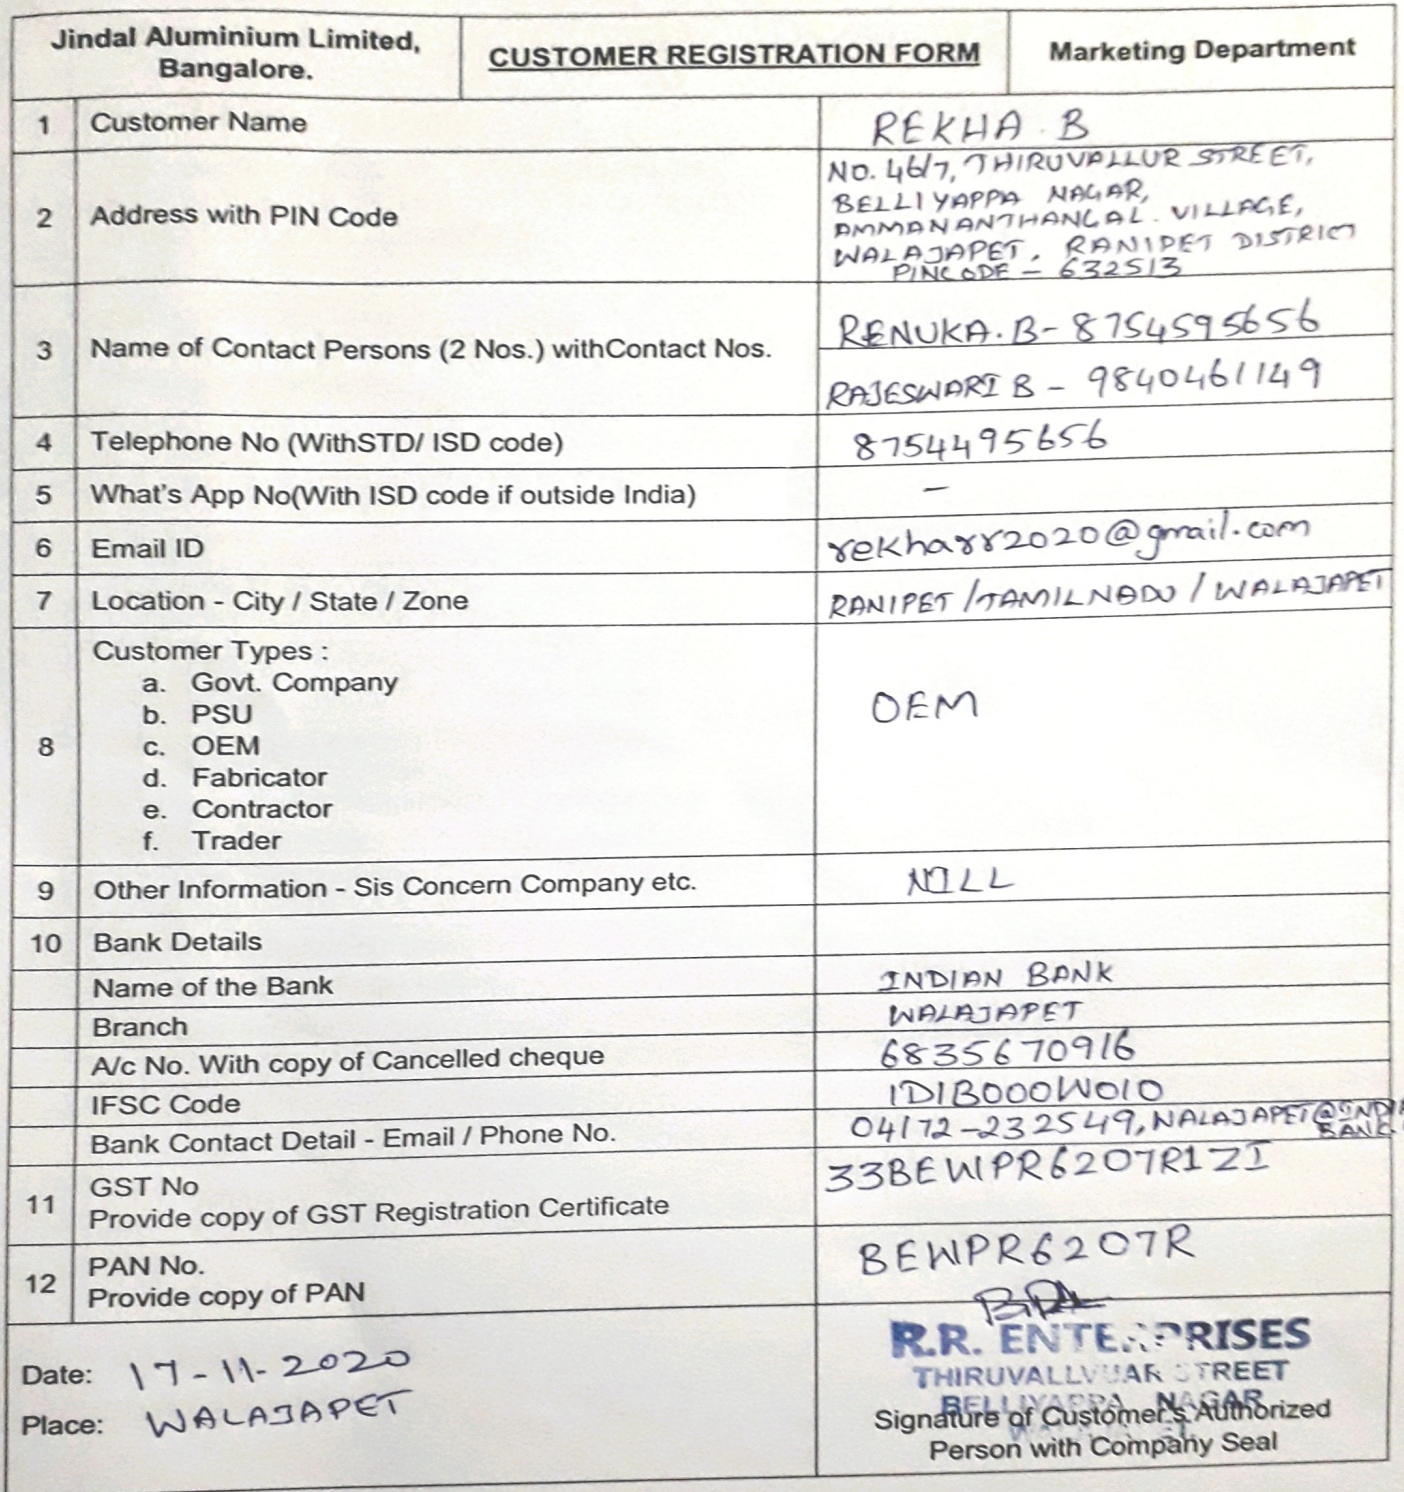 Jindal Aluminium Limited,
Bangalore.
CUSTOMER REGISTRATION FORM
Marketing Department
1 Customer Name REKHA. B
2 Address with PIN Code
NO. 46/7, THIRUVALLUR STREET,
BELLIYAPPA NAGAR,
AMMANANTHANGAL. VILLAGE,
WALAJAPET, RANIPET DISTRICT
PINCODE - 632513
3 Name of Contact Persons (2 Nos.) withContact Nos.
RENUKA.B- 8754595656
RAJESWARI B - 9840461149
4 Telephone No (WithSTD/ ISD code) 8754495656
5 What's App No(With ISD code if outside India) -
6 Email ID rekharr2020@gmail.com
7 Location - City / State / Zone RANIPET /TAMILNADU / WALAJAPET
8 Customer Types :
a. Govt. Company
b. PSU
c. OEM
d. Fabricator
e. Contractor
f. Trader
OEM
9 Other Information - Sis Concern Company etc. NILL
10 Bank Details
Name of the Bank INDIAN BANK
Branch WALAJAPET
A/c No. With copy of Cancelled cheque 6835670916
IFSC Code IDIB000W010
Bank Contact Detail - Email / Phone No. 04172-232549, WALAJAPET@INDIA
BANK
11 GST No
Provide copy of GST Registration Certificate
33BEWPR6207R1ZI
12 PAN No.
Provide copy of PAN
BEWPR6207R
Date: 17-11-2020
Place: WALAJAPET
R.R. ENTERPRISES
THIRUVALLVUAR STREET
BELLIYAPPA NAGAR
Signature of Customer's Authorized
Person with Company Seal